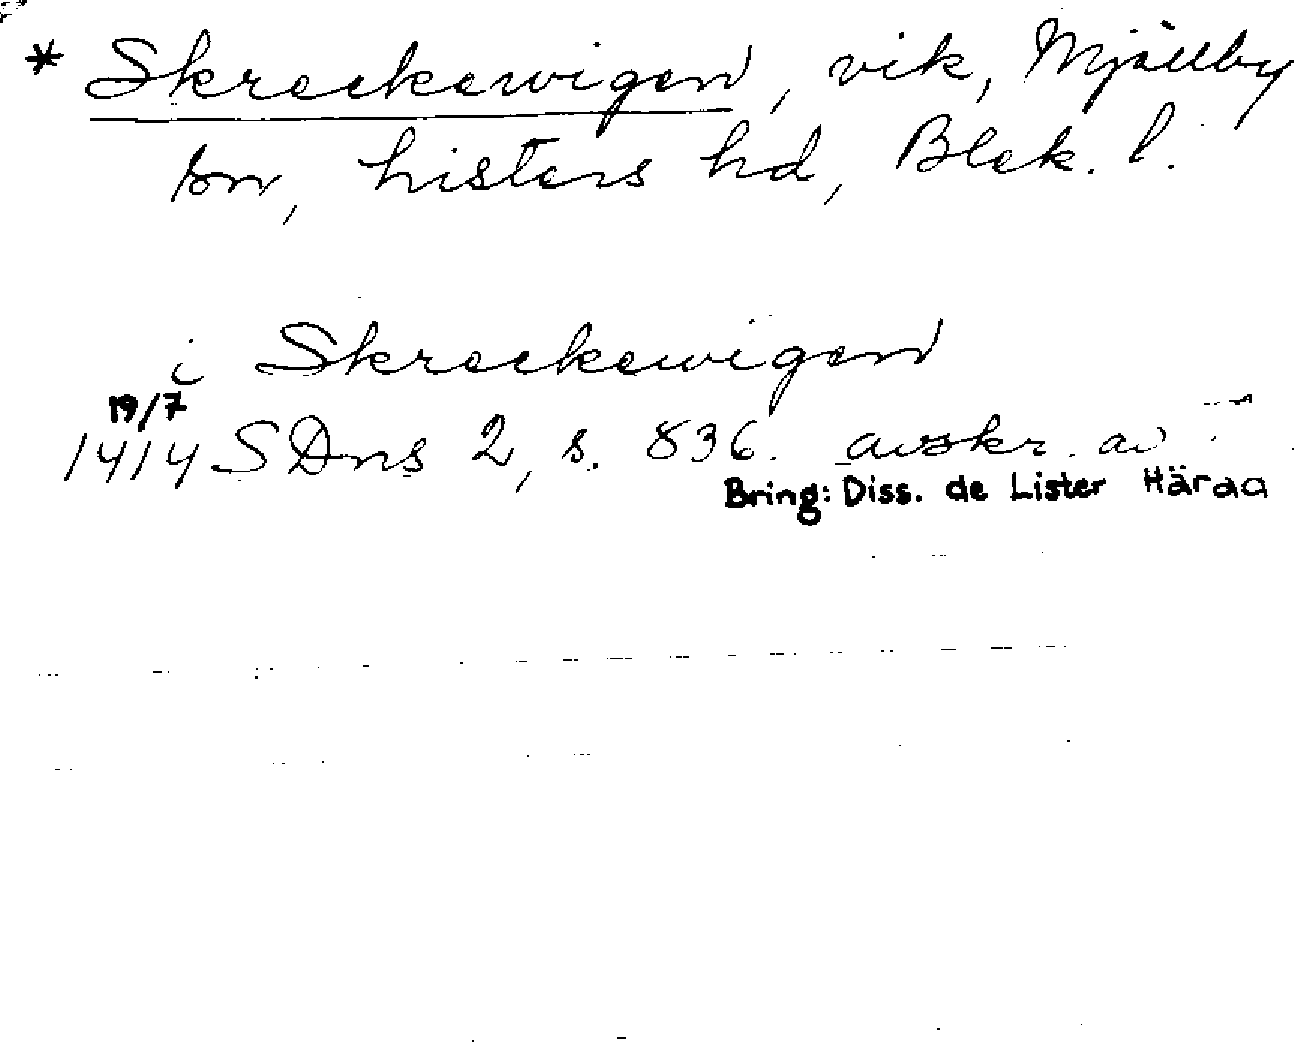 * Skreckewigen, vik, Mjällby
sn, Listers hd, Blek. l.
i Skreckewigen
19/7
1414 SDns 2, s. 836. avskr. av
Bring: Diss. de Lister Härad